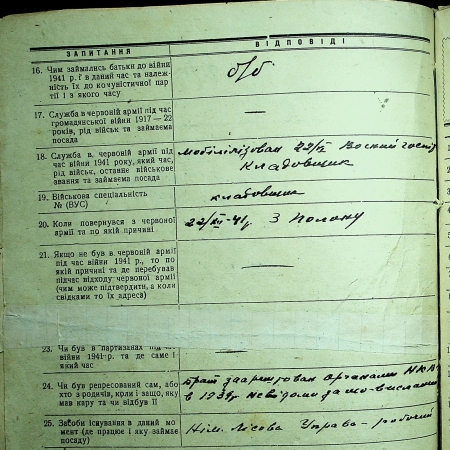 ЗАПИТАННЯ
ВІДПОВІДІ
16. Чим займались батьки до війни
1941 р. і в даний час та належ-
ність їх до комуністичної пар-
тії і з якого часу
б/б
17. Служба в червоній армії під час
громадянської війни 1917—22
років, рід військ та займаєма
посада
—
18. Служба в червоній армії під
час війни 1941 року, який час,
рід військ, останнє військове
звання та займаєма посада
мобілізован 22/
кладовщик
19. Військова спеціальність
№ (ВУС)
кладовщик
20. Коли повернувся з червоної
армії та по якій причині
22/XII-41р. З полону
21. Якщо не був в червоній армії
під час війни 1941 р., то по
якій причині та де перебував
підчас відходу червоної армії
(чим може підтвердити, а коли
свідками то їх адреса)
—
23. Чи був в партизанах під час
війни 1941 р. та де саме і
який час
24. Чи був репресований сам, або
хто з родичів, коли і защо, яку
мав кару та чи відбув її
Брат заарештован органами НКВ
в 193 р. невідомо за що
25. Засоби існування в даний мо-
мент (де працює і яку займає
посаду)
Нім. Лісова Управа - робочий